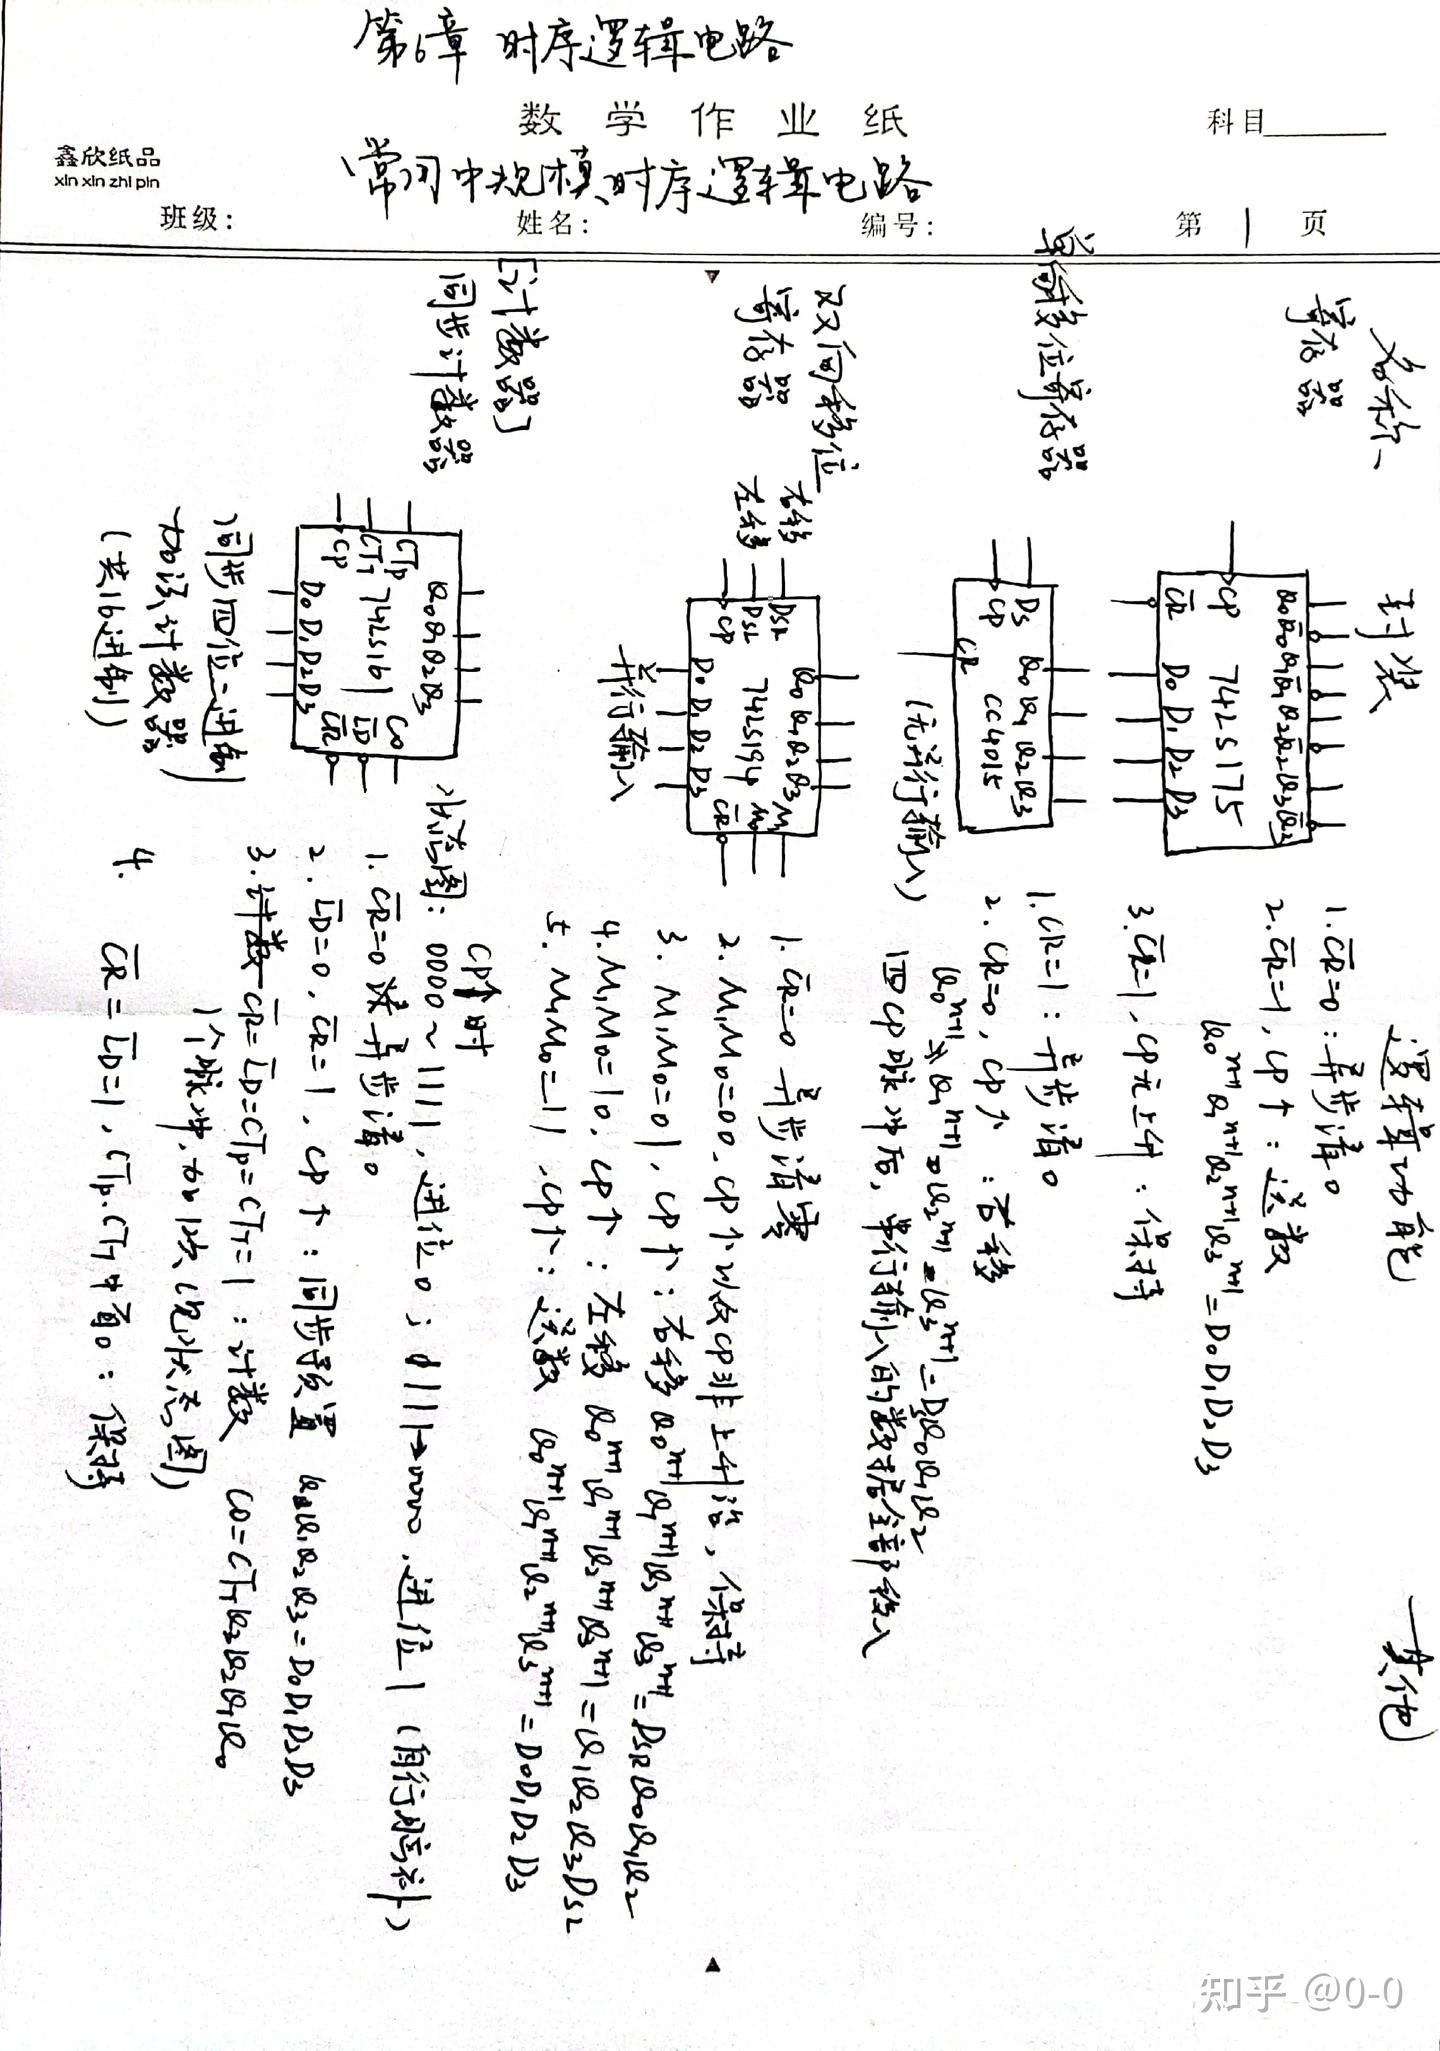 第6章 时序逻辑电路
数学作业纸
科目
鑫欣纸品
xin xin zhi pin
常用中规模时序逻辑电路
班级:
姓名:
编号:
第 1 页
名称
封装
逻辑功能
其他
寄存器
CP
C̅R̅
74LS175
Q0Q̅0Q1Q̅1Q2Q̅2Q3Q̅3
D0 D1 D2 D3
1. C̅R̅=0:异步清0
2. C̅R̅=1,CP↑:送数
Q0ⁿ⁺¹Q1ⁿ⁺¹Q2ⁿ⁺¹Q3ⁿ⁺¹=D0D1D2D3
3. C̅R̅=1,CP无上升:保持
单向移位寄存器
DS
CP
CR
Q0 Q1 Q2 Q3
CC4015
(无并行输入)
1. CR=1:异步清0
2. CR=0,CP↑:右移
Q0ⁿ⁺¹Q1ⁿ⁺¹Q2ⁿ⁺¹Q3ⁿ⁺¹=DSQ0Q1Q2
四CP脉冲后,串行输入的数据全部移入
双向移位
寄存器
右移
左移
DSR
DSL
CP
Q0 Q1 Q2 Q3
74LS194
D0 D1 D2 D3
M1
M0
C̅R̅
并行输入
1. C̅R̅=0 异步清零
2. M1M0=00,CP↑以及CP非上升沿,保持
3. M1M0=01,CP↑:右移 Q0ⁿ⁺¹Q1ⁿ⁺¹Q2ⁿ⁺¹Q3ⁿ⁺¹=DSRQ0Q1Q2
4. M1M0=10,CP↑:左移 Q0ⁿ⁺¹Q1ⁿ⁺¹Q2ⁿ⁺¹Q3ⁿ⁺¹=Q1Q2Q3DSL
5. M1M0=11,CP↑:送数 Q0ⁿ⁺¹Q1ⁿ⁺¹Q2ⁿ⁺¹Q3ⁿ⁺¹=D0D1D2D3
[计数器]
同步计数器
CTP
CTT
CP
Q0Q1Q2Q3
74LS161
D0D1D2D3
CO
L̅D̅
C̅R̅
同步四位二进制
加法计数器
(共16进制)
CP↑时
状态图:0000~1111,进位0;1111→0000,进位1(自行脑补)
1. C̅R̅=0 异步清0
2. L̅D̅=0,C̅R̅=1,CP↑:同步预置 Q0Q1Q2Q3=D0D1D2D3
3. C̅R̅=L̅D̅=CTP=CTT=1:计数 CO=CTTQ3Q2Q1Q0
1个脉冲,加1次(见状态图)
4. C̅R̅=L̅D̅=1,CTP、CTT中有0:保持
知乎 @0-0